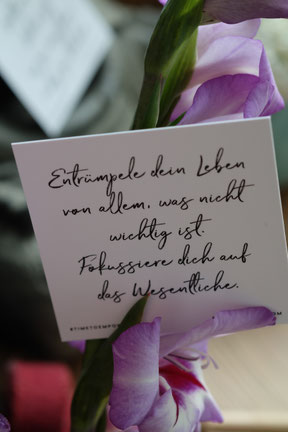 Entrümpele dein Leben
von allem, was nicht
wichtig ist.
Fokussiere dich auf
das Wesentliche.